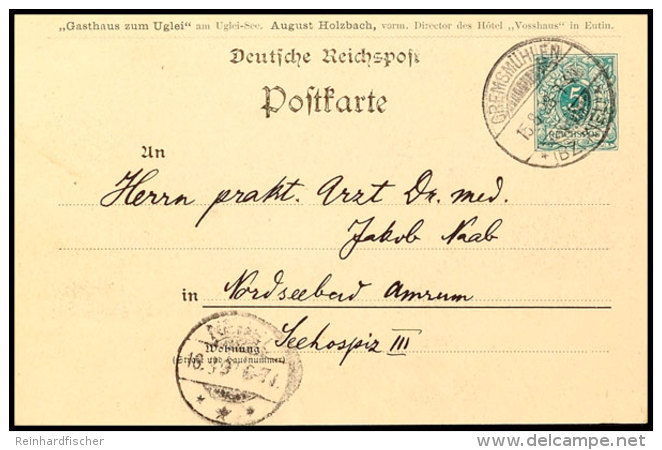 „Gasthaus zum Uglei“ am Uglei-See. August Holzbach, vorm. Director des Hôtel „Vosshaus“ in Eutin.
Deutsche Reichspost
Postkarte
GREMSMÜHLEN
5
REICHSPOST
An
Herrn prakt. Arzt Dr. med.
Jakob Naab
in Nordseebad Amrum
Seehospiz III
Wohnung
(Straße und Hausnummer)
Reinhardfischer
delcampe.net